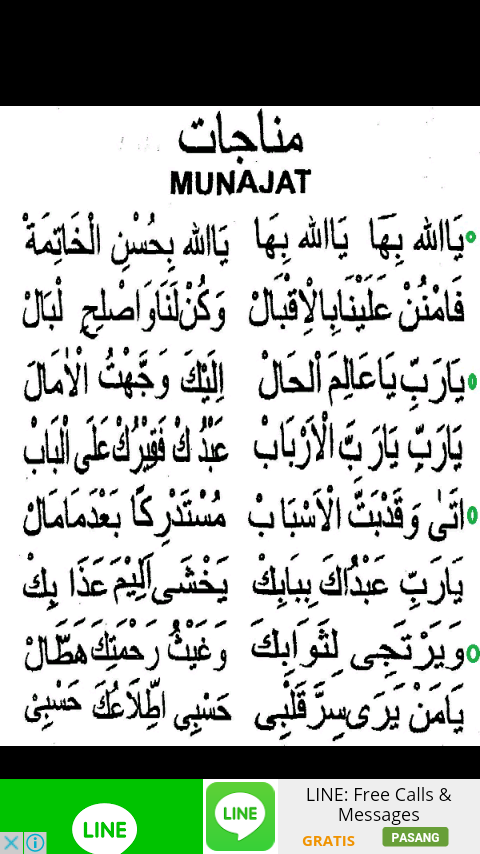 مناجات
MUNAJAT
يَااللّٰه بِهَا يَااللّٰه بِهَا يَااللّٰه بِحُسْنِ الْخَاتِمَةْ
فَامْنُنْ عَلَيْنَابِالْاِقْبَالْ وَكُنْ لَنَاوَاصْلِحِ لْبَالْ
يَارَبِّ يَاعَالِمَ الْحَالْ اِلَيْكَ وَجَّهْتُ الْاٰمَالَ
يَارَبِّ يَارَبَّ الْاَرْبَابْ عَبْدُكْ فَقِيْرُكْ عَلَى الْبَابْ
اَتٰى وَقَدْبَتَّ الْاَسْبَابْ مُسْتَدْرِكًا بَعْدَمَامَالْ
يَارَبِّ عَبْدُاكَ بِبَابِكْ يَخْشَى اَلِيْمَ عَذَابِكْ
وَيَرْتَجِى لِثَوَابِكَ وَغَيْثُ رَحْمَتِكَ هَطَّالْ
يَامَنْ يَرَى سِرَّقَلْبِى حَسْبِى اطِّلَاعُكَ حَسْبِىْ
LINE
LINE
LINE: Free Calls &
Messages
GRATIS
PASANG